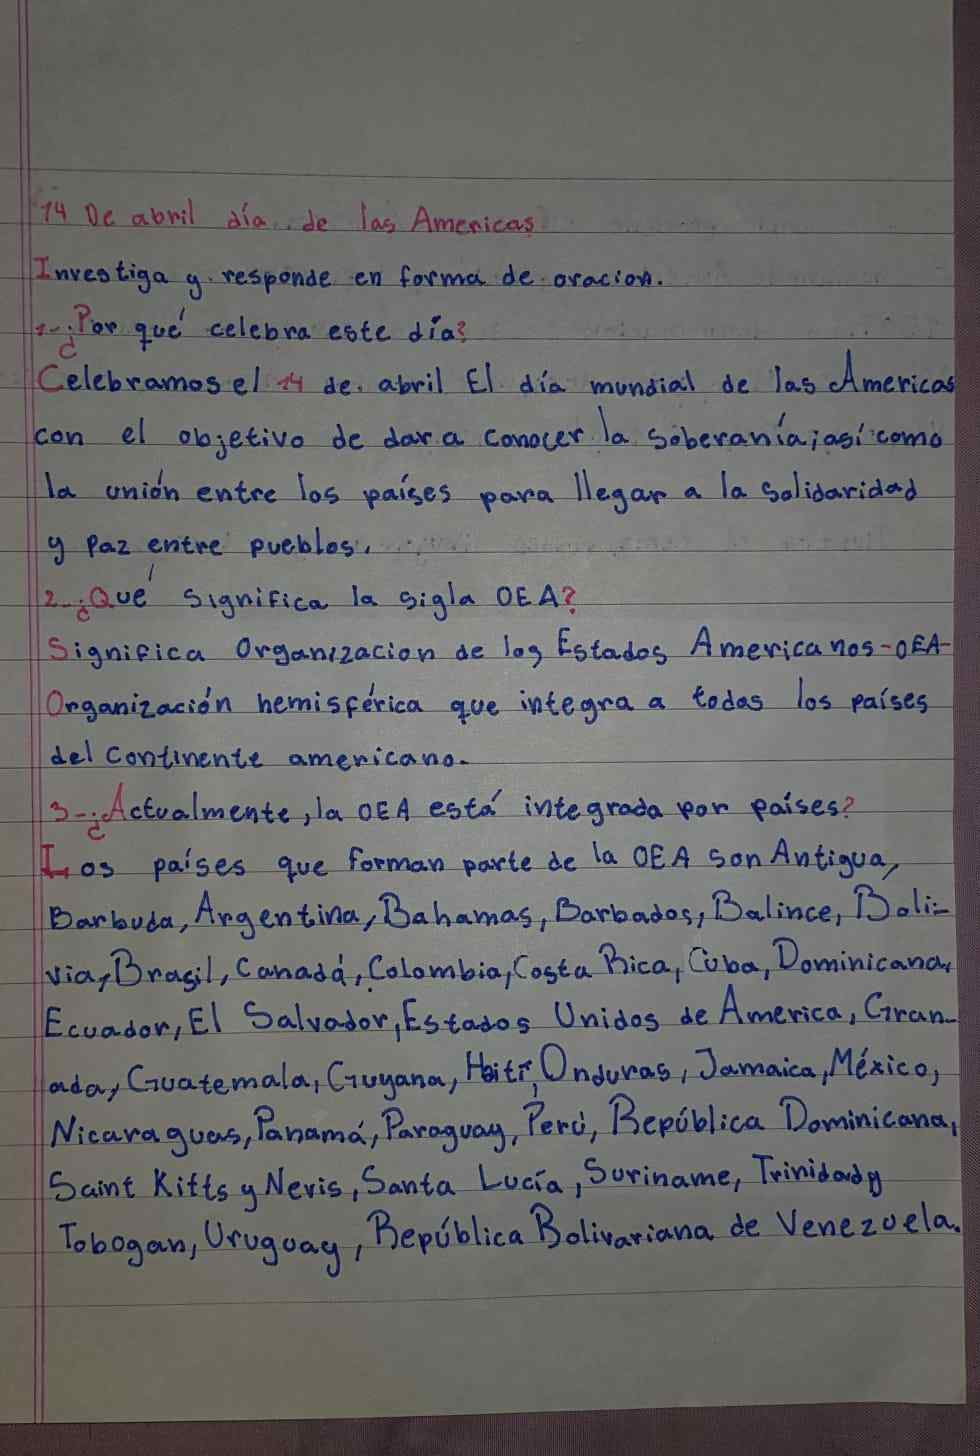 14 De abril día de las Americas
Investiga y responde en forma de oracion.
1-¿Por qué celebra este día?
Celebramos el 14 de abril El día mundial de las Americas
con el objetivo de dar a conocer la soberanía; así como
la unión entre los países para llegar a la solidaridad
y Paz entre pueblos.
2-¿Qué significa la sigla OEA?
Significa Organizacion de los Estados Americanos-OEA-
Organización hemisférica que integra a todos los países
del continente americano.
3-¿Actualmente, la OEA está integrada por países?
Los países que forman parte de la OEA son Antigua,
Barbuda, Argentina, Bahamas, Barbados, Balince, Boli-
via, Brasil, Canadá, Colombia, Costa Rica, Cuba, Dominicana,
Ecuador, El Salvador, Estados Unidos de America, Gran-
ada, Guatemala, Guyana, Haití, Onduras, Jamaica, México,
Nicaraguas, Panamá, Paraguay, Perú, República Dominicana,
Saint Kitts y Nevis, Santa Lucía, Suriname, Trinidady
Tobogan, Uruguay, República Bolivariana de Venezuela.